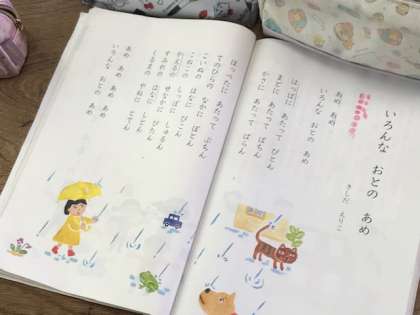 いろんな おとの あめ
きしだ えりこ
あめ あめ
いろんな おとの あめ
はっぱに あたって ぴとん
まどに あたって ぱちん
かさに あたって ぱらん
ほっぺたに あたって ぷちん
てのひらの なかに ぽとん
こいぬの はなに ぴこん
こねこの しっぽに しゅるん
かえるの せなかに ぴたん
すみれの はなに しとん
くるまの やねに とてん
あめ あめ あめ あめ
いろんな おとの あめ